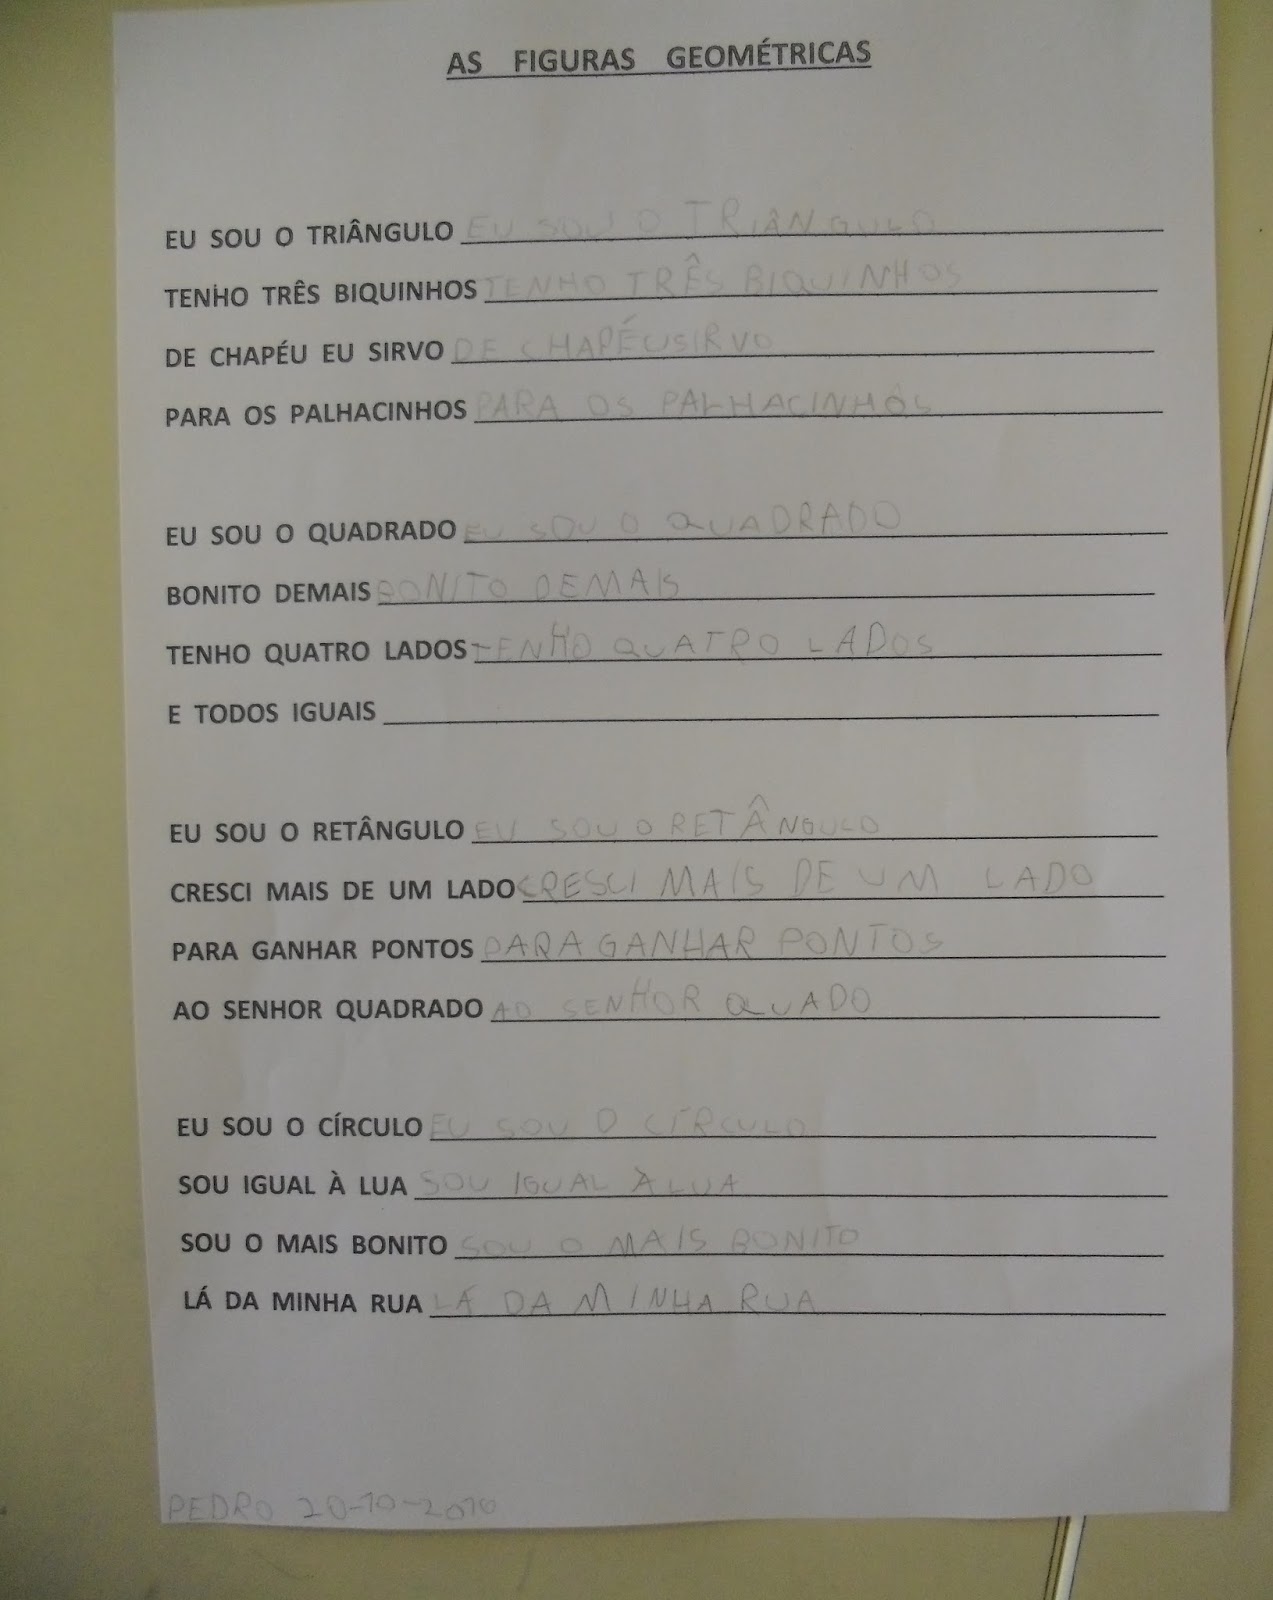 AS FIGURAS GEOMÉTRICAS
EU SOU O TRIÂNGULO EU SOU O TRIÂNGULO
TENHO TRÊS BIQUINHOS TENHO TRÊS BIQUINHOS
DE CHAPÉU EU SIRVO DE CHAPÉUSIRVO
PARA OS PALHACINHOS PARA OS PALHACINHOS
EU SOU O QUADRADO EU SOU O QUADRADO
BONITO DEMAIS BONITO DEMAIS
TENHO QUATRO LADOS TENHO QUATRO LADOS
E TODOS IGUAIS
EU SOU O RETÂNGULO EU SOU O RETÂNGULO
CRESCI MAIS DE UM LADO CRESCI MAIS DE UM LADO
PARA GANHAR PONTOS PARA GANHAR PONTOS
AO SENHOR QUADRADO AO SENHOR QUADO
EU SOU O CÍRCULO EU SOU O CÍRCULO
SOU IGUAL À LUA SOU IGUAL À LUA
SOU O MAIS BONITO SOU O MAIS BONITO
LÁ DA MINHA RUA LÁ DA MINHA RUA
PEDRO 20-10-2010